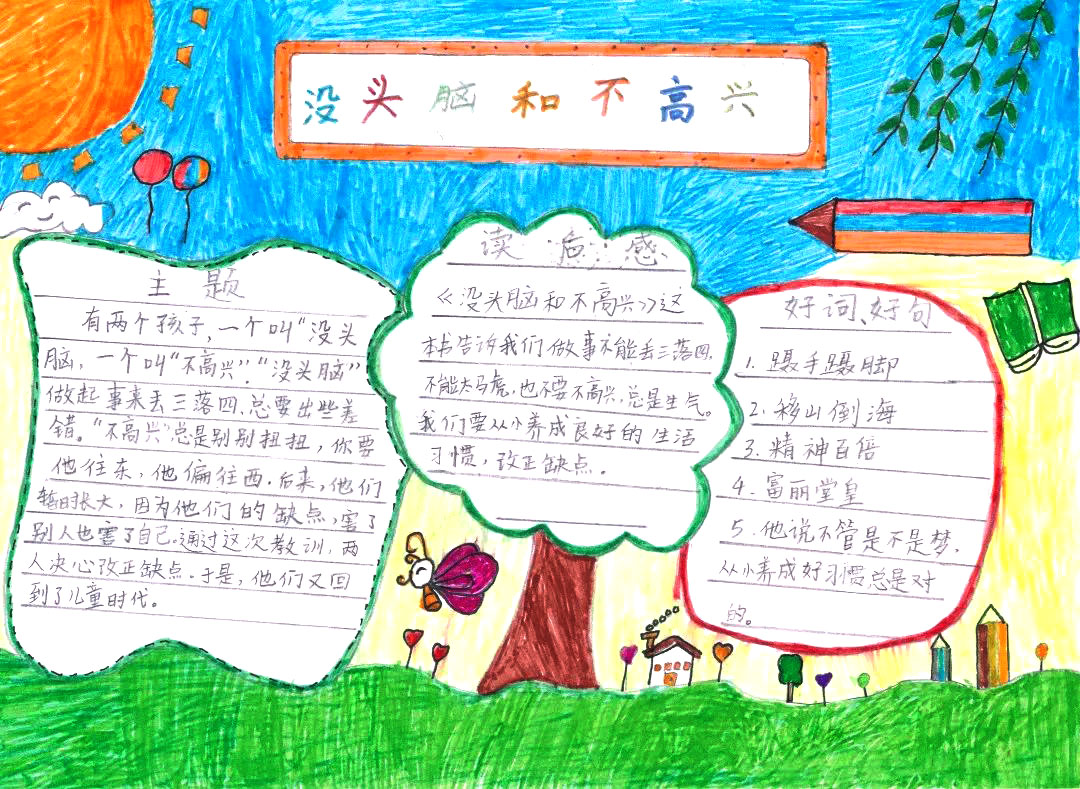 没头脑和不高兴
主题
有两个孩子,一个叫“没头
脑,一个叫“不高兴”.“没头脑”
做起事来丢三落四、总要出些差
错。“不高兴”总是别别扭扭,你要
他往东,他偏往西.后来,他们
暂时长大,因为他们的缺点,害了
别人也害了自己.通过这次教训,两
人决心改正缺点.于是,他们又回
到了儿童时代。
读后感
《没头脑和不高兴》这
本书告诉我们做事不能丢三落四.
不能太马虎,也不要不高兴,总是生气。
我们要从小养成良好的生活
习惯,改正缺点.
好词、好句
1.蹑手蹑脚
2.移山倒海
3.精神百倍
4.富丽堂皇
5.他说不管是不是梦,
从小养成好习惯总是对
的。